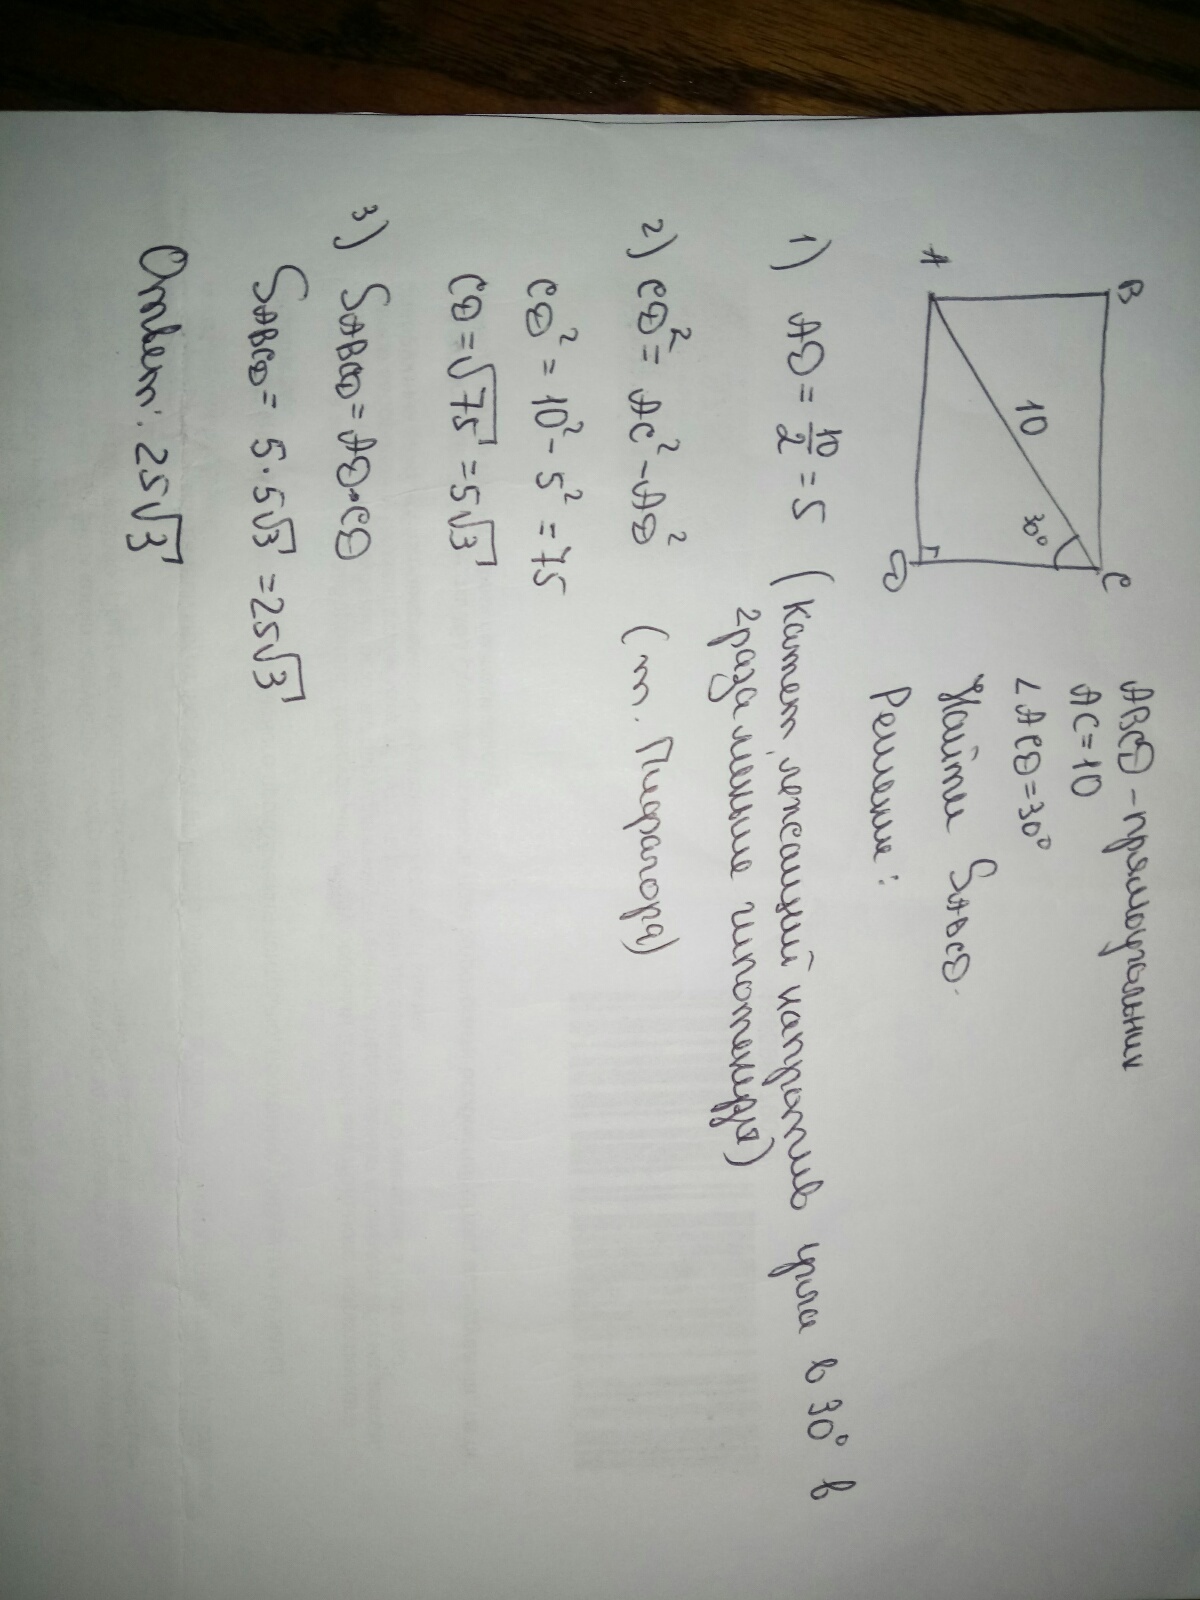 B
C
10
30°
A
D
ABCD - прямоугольник
AC = 10
∠ACD = 30°
Найти SABCD.
Решение:
1) AD = 10/2 = 5 (катет, лежащий напротив угла в 30° в
2 раза меньше гипотенузы)
2) CD² = AC² - AD² (т. Пифагора)
CD² = 10² - 5² = 75
CD = √75 = 5√3
3) SABCD = AD·CD
SABCD = 5·5√3 = 25√3
Ответ: 25√3